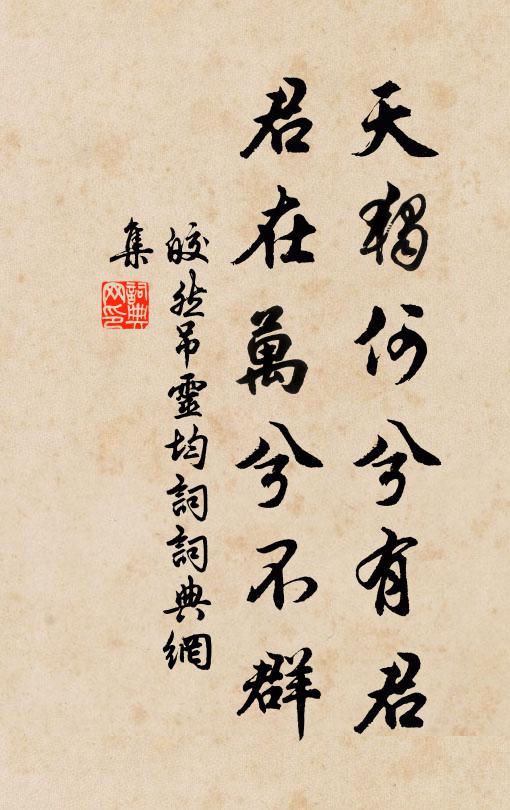 天獨何兮有君
君在萬兮不群
皎然吊靈均詞詞典網
集
詞典網印